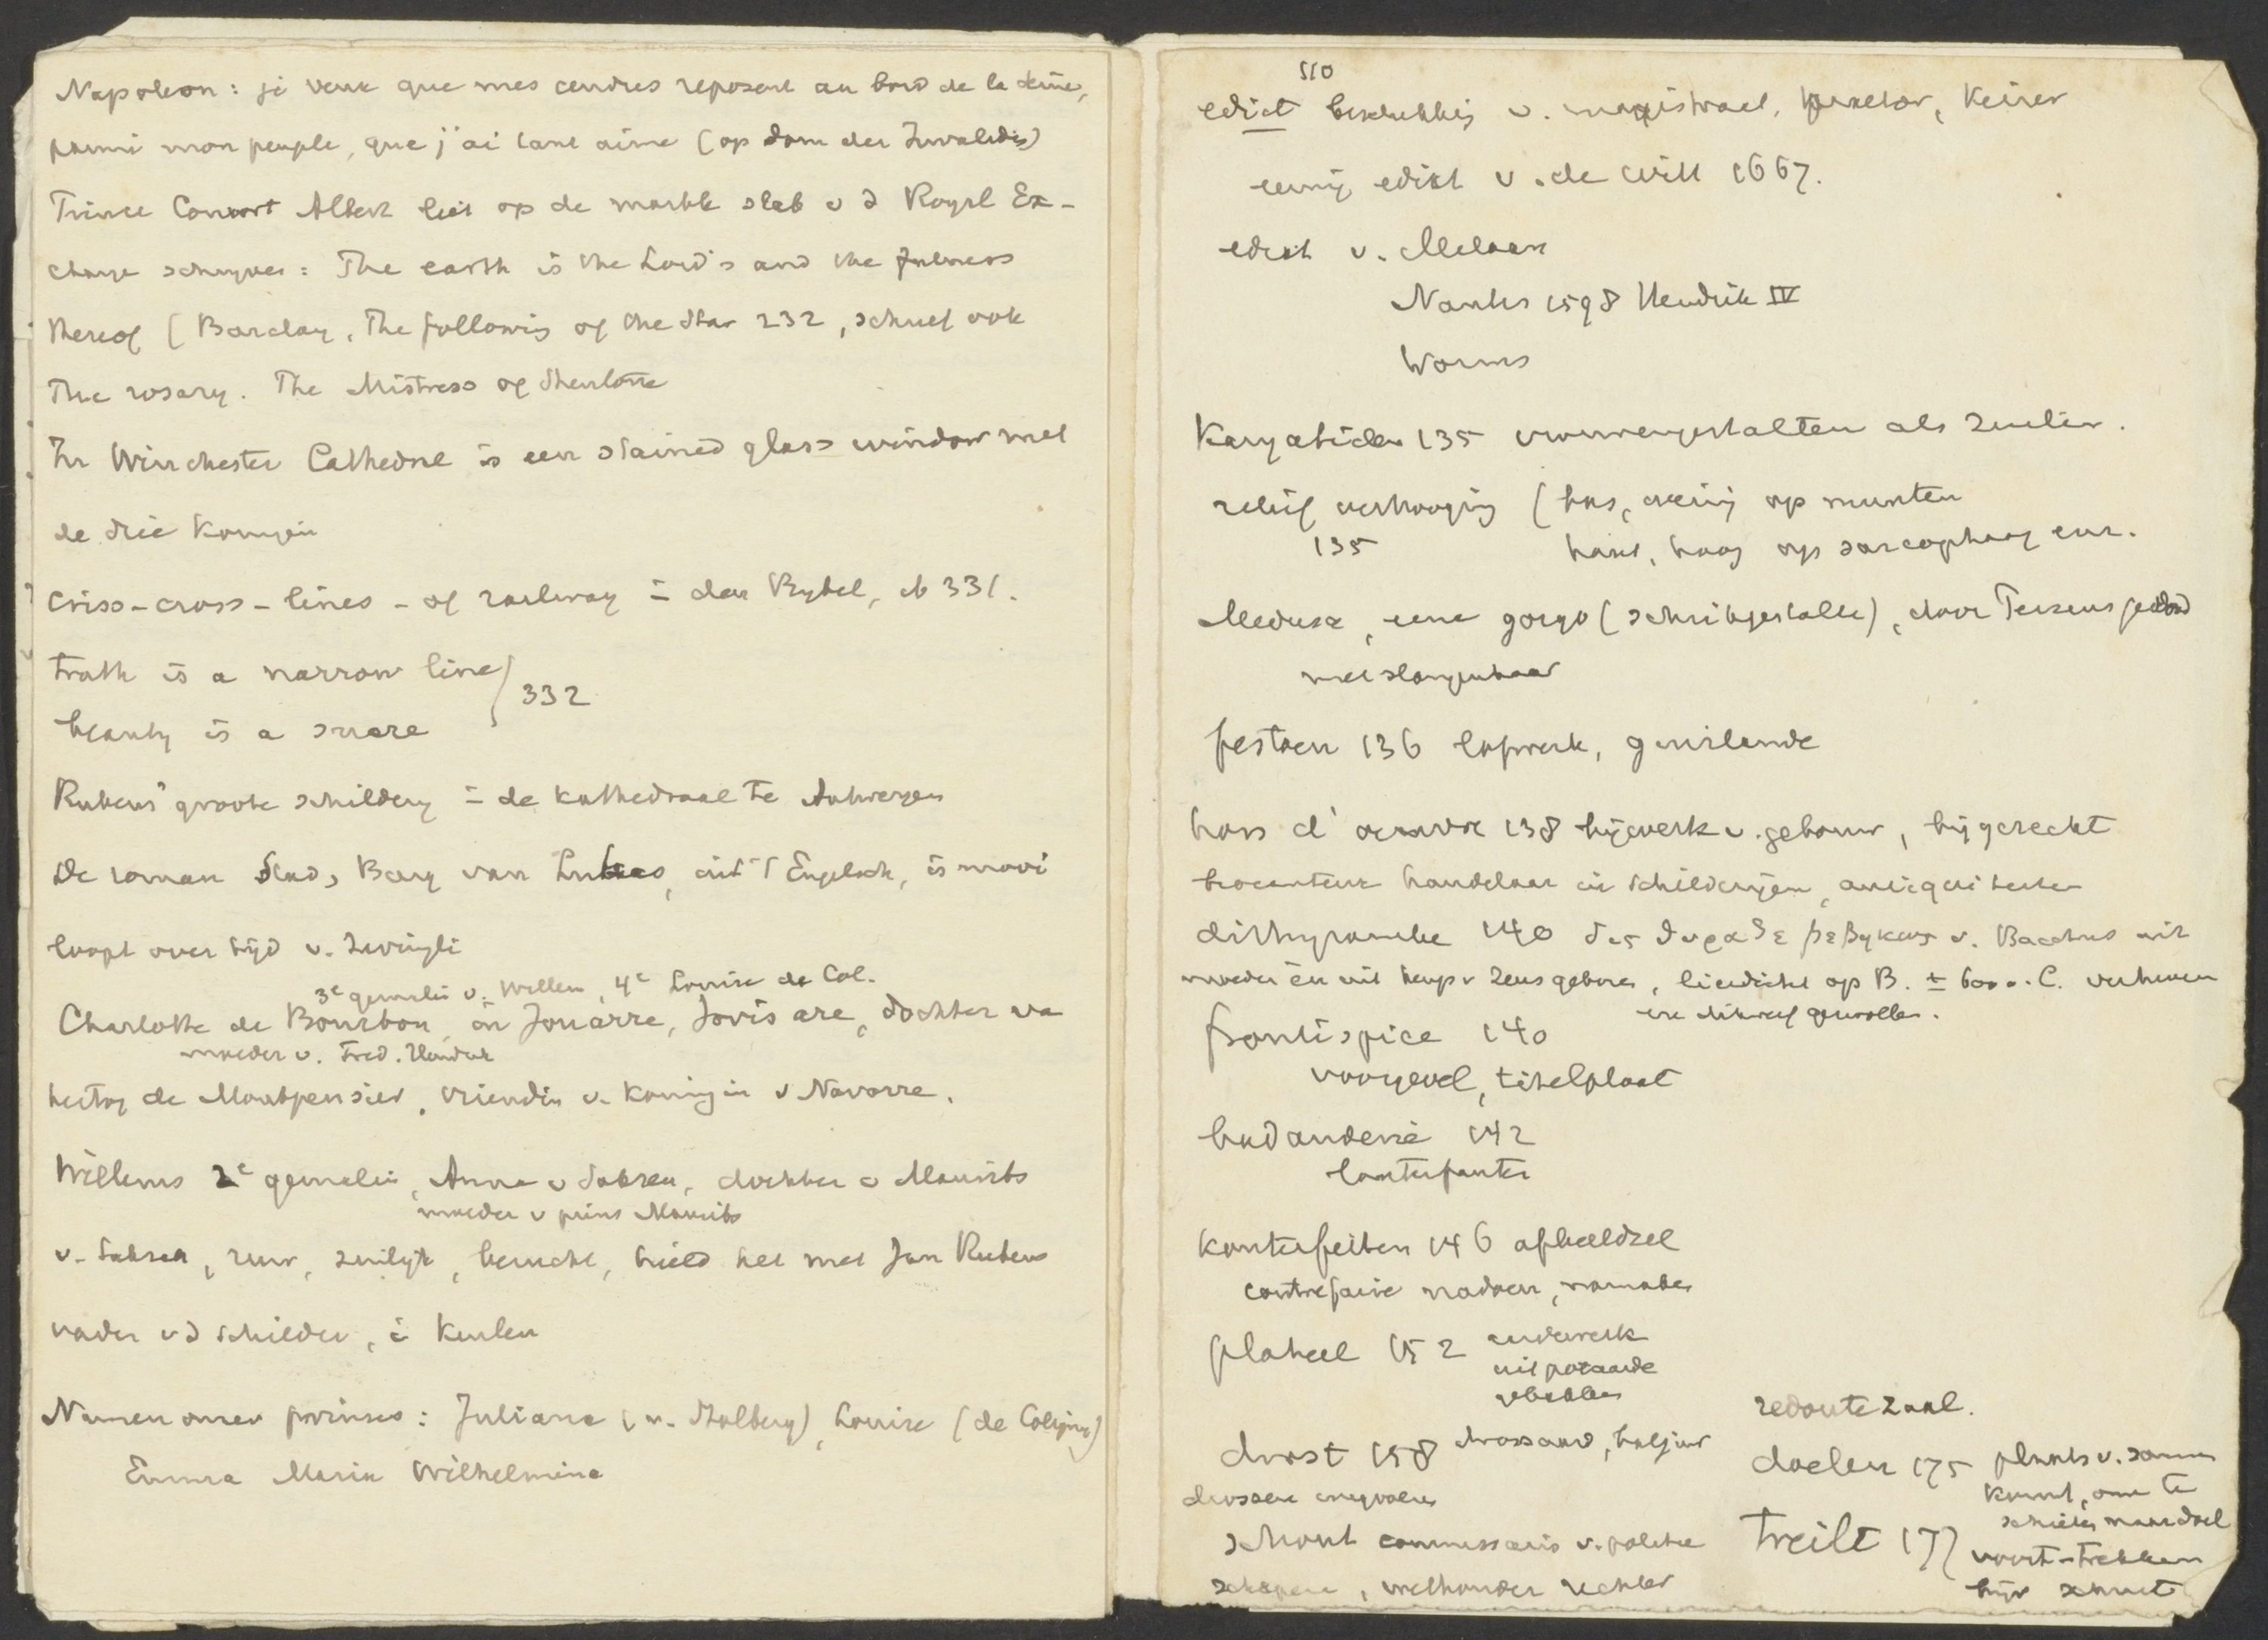 Napoleon: je veux que mes cendres reposent au bord de la Seine,
parmi mon peuple, que j'ai tant aimé (op dom der Invalides)
Prince Consort Albert liet op de marble slab v d Royal Ex-
change schryven: The earth is the Lord's and the fulness
thereof (Barclay, The following of the Star 232, schreef ook
The rosary. The Mistress of Shenstone
In Winchester Cathedral is een stained glass window met
de drie Koningen
criss-cross-lines - of railway = den Bybel, ib 331.
truth is a narrow line
beauty is a snare } 332
Rubens' groote schildery in de kathedraal te Antwerpen
De roman van Lukas, uit 't Engelsch, is mooi
loopt over tijd v. Zwingli
3e gemalin v. Willem, 4e Louise de Col.
Charlotte de Bourbon, in Jouarre, Jovis are, dochter va
moeder v. Fred. Hendrik
hertog de Montpensier, vriendin v. Koningin v Navarre.
Willems 2e gemalin, Anna v Saksen, dochter v Maurits
moeder v prins Maurits
v. Saksen, zuur, berucht, hield het met Jan Rubens
vader v d schilder, in Keulen
Namen onzer prinses: Juliana (v. Stolberg), Louise (de Coligny)
Emma Maria Wilhelmina
510
edict v. magistraat, praetor, Keizer
eeuwig edikt v. de Witt 1667.
edikt v. Milaan
Nantes 1598 Hendrik IV
Worms
Karyatiden 135 vrouwengestalten als zuilen.
relief verhooging (bas, op munten
135 haut, hoog op sarcophaag enz.
Medusa, eene gorgo (schrikgestalte), door Perseus gedood
met slangenhaar
festoen 136 lofwerk, guirlande
hors d'oeuvre 138 bijwerk v. gebouw, bijgerecht
brocanteur handelaar in schilderijen, antiquiteiten
dithyrambe 140 δις θυραζε βεβηκως v. Bacchus uit
moeder en uit heup v Zeus geboren, lierdicht op B. ± 600 v. C. verheven
frontispice 140
voorgevel, titelplaat
badauderie 142
lanterfanten
konterfeiten 146 afbeeldsel
contrefaire nadoen, namaken
plateel 152 aardewerk
uit potaarde
gebakken
redoute zaal.
drost 158 drossaard, baljuw
doelen 175 plaats v. samen
komst, om te
schieten naar doel
schout commissaris v. politie
treilt 177 voort-trekken
schepen, wethouder rechter